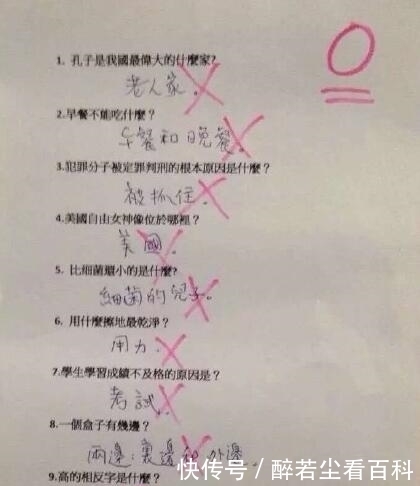 0
1. 孔子是我國最偉大的什麼家?
老人家。
2.早餐不能吃什麼？
午餐和晚餐。
3.犯罪分子被定罪判刑的根本原因是什麼？
被抓住。
4.美國自由女神像位於哪裡？
美國。
5. 比細菌還小的是什麼?
細菌的兒子。
6. 用什麼擦地最乾淨？
用力.
7.學生學習成績不及格的原因是？
考試.
8.一個盒子有幾邊？
兩邊:裏邊和外邊.
9.高的相反字是什麼?
快传号 / 醉若尘看百科